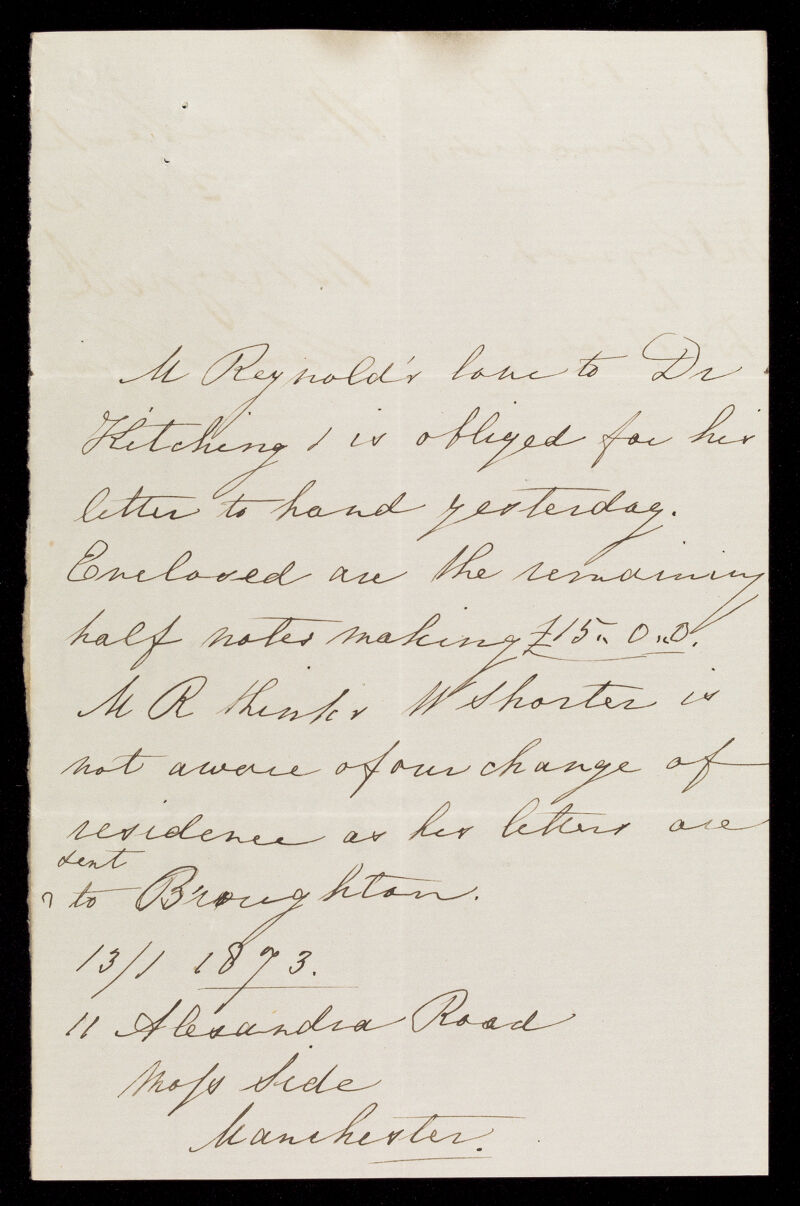 M Reynold's love to Dr
Kitching & is obliged for his
letter to hand yesterday.
Enclosed are the remaining
half notes making £15 " 0 " 0.
M R thinks W Shorter is
not aware of our change of
residence as his letters are
sent
to Broughton.
13/1 1873.
11 Alexandra Road
Moss Side
Manchester.